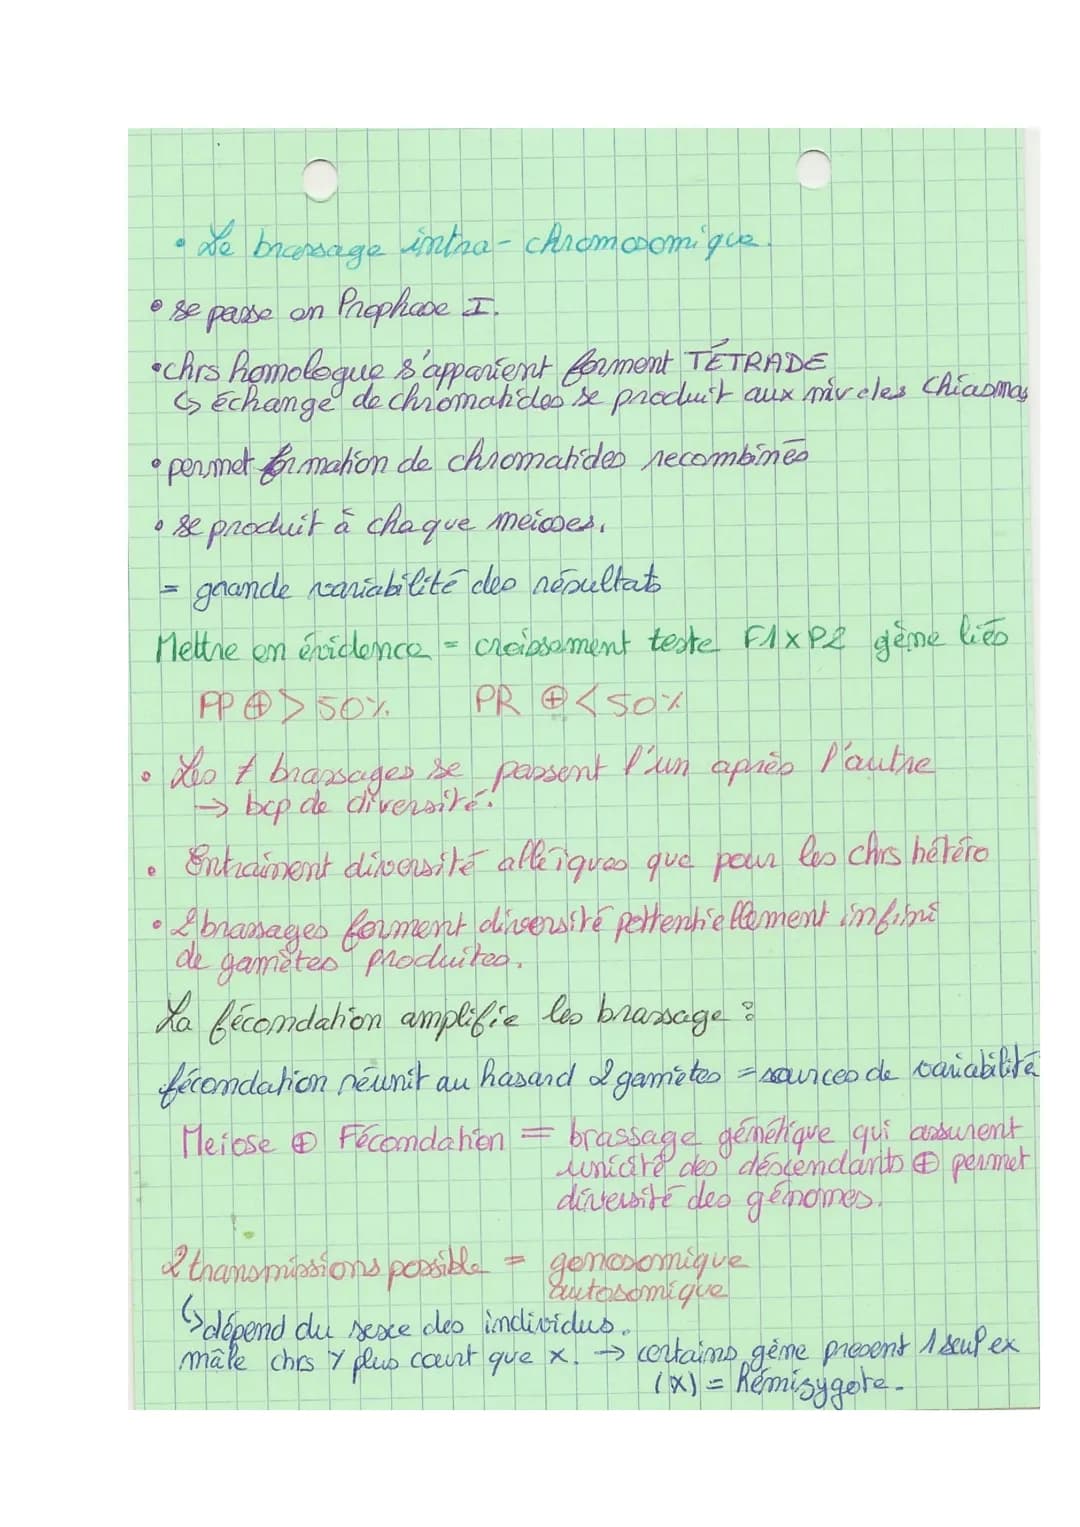 • Le brassage intra-chromosomique.
• se passe en Prophase I.
• chrs homologue s'apparient forment TÉTRADE
↳ échange de chromatides se produit aux niveles chiasmas
• permet formation de chromatides recombinés
• se produit à chaque meioses.
= grande variabilité des résultats
Mettre en évidence = croissement teste F1xP2 gène liés
PP ⊕ > 50% PR ⊕ < 50%
• Les ≠ brassages se passent l'un après l'autre
→ bcp de diversité.
• Entrainent diversité alléiques que pour les chrs hétéro
• 2 brassages forment diversité pottentiellement infini
de gamètes produites.
La fécondation amplifie les brassage :
fécondation réunit au hasard 2 gamètes = sources de variabilité
Meiose ⊕ Fécondation = brassage génétique qui assurent
unicité des descendants ⊕ permet
diversité des génomes.
2 transmissions possible = gonosomique
autosomique
↳ dépend du sexe des individus.
mâle chrs Y plus court que X. → certains gène present 1 seul ex
(X) = hémizygote.